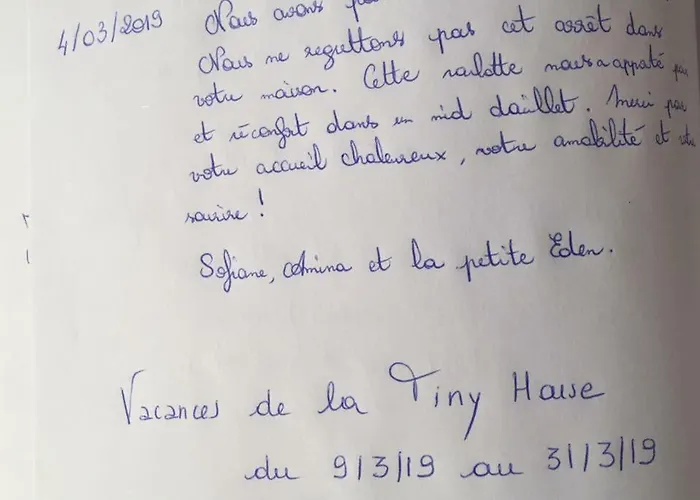 4/03/2019 Nous avons
Nous ne regrettons pas cet arrêt dans
votre maison. Cette roulotte nous a appaté
et réconfort dans un nid daillet. Merci pour
votre accueil chaleureux, votre amabilité et votre
sourire !
Sofiane, Amina et la petite Eden.
Vacances de la Tiny House
du 9/3/19 au 31/3/19